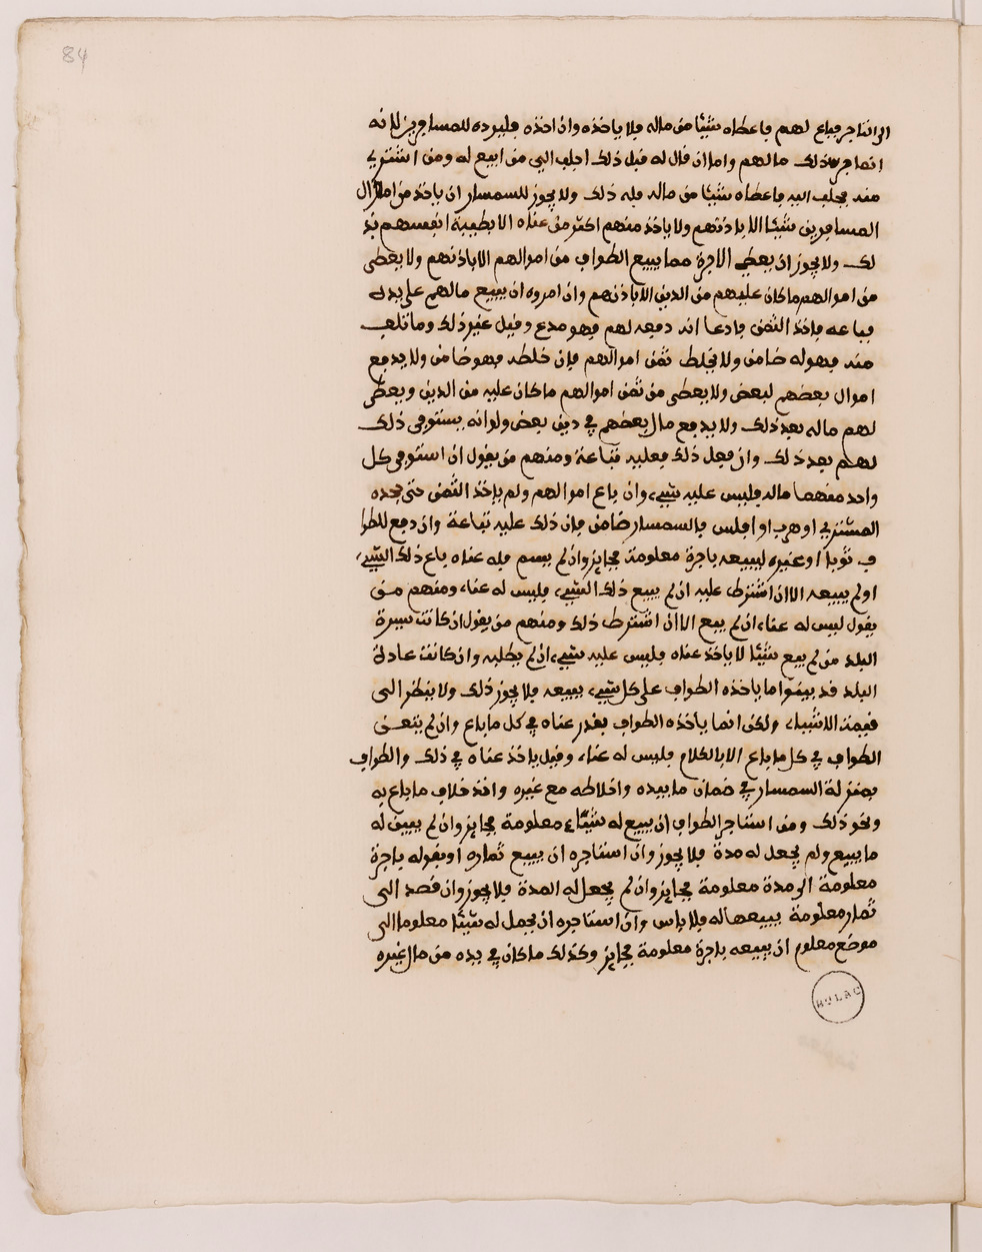 84
الى التاجر فباع لهم فاعطاه شيئا من ماله فلا ياخذه وان اخذه فليرده للمسافرين لانه
انما جر ذلك مالهم واما ان قال له قبل ذلك اجلب الي من ابيع له ومن اشتري
منه فجلب اليه فاعطاه شيئا من ماله فله ذلك ولا يجوز للسمسار ان ياخذ من اموال
المسافرين شيئا الا باذنهم ولا ياخذ منهم اكثر من عناه الا بطيبة انفسهم بذ
لك ولا يجوز ان يعطي الاجرة مما يبيع الطواف من اموالهم الا باذنهم ولا يعطى
من اموالهم ما كان عليهم من الدين الا باذنهم وان امروه ان يبيع مالهم على يده
فباعه فاخذ الثمن فادعا انه دفعه لهم فهو مدع وقيل غير ذلك وما تلف
منه فهو له ضامن ولا يخلط ثمن اموالهم فان خلطه فهو ضامن ولا يدفع
اموال بعضهم لبعض ولا يعطى من ثمن اموالهم ما كان عليه من الدين ويعطى
لهم ماله بعد ذلك ولا يدفع مال بعضهم في دين بعض ولو انه يستوفى ذلك
لهم بعد ذلك وان فعل ذلك فعليه تباعة ومنهم من يقول ان استوفى كل
واحد منهما ماله فليس عليه شيء وان باع اموالهم ولم ياخذ الثمن حتى جحده
المشتري او هرب او افلس فالسمسار ضامن فان ذلك عليه تباعة وان دفع للطوا
ف ثوبا او غيره ليبيعه باجرة معلومة فجايز وان لم يسم فله عناه باع ذلك الشيء
او لم يبيعه الا ان اشترط عليه ان لم يبيع ذلك الشيء فليس له عناء ومنهم من
يقول ليس له عناء ان لم يبع الا ان اشترط ذلك ومنهم من يقول ان كانت سيرة
البلد من لم يبع شيئا لا ياخذ عناه فليس عليه شيء ان لم يطلبه وان كانت عادة
البلد قد بينوا ما ياخذه الطواف على كل شيء يبيعه فلا يجوز ذلك ولا ينظر الى
قيمة الاشياء ولكن انما ياخذه الطواف بقدر عناه في كل ما باع وان لم يتعن
الطواف في كل ما باع الا بالكلام فليس له عناء وقيل ياخذ عناه في ذلك والطواف
بمنزلة السمسار في ضمان ما بيده واخلاطه مع غيره واخذ خلاف ما باع به
ونحو ذلك ومن استاجر الطواف ان يبيع له شيئا معلومة فجايز وان لم يبين له
ما يبيع ولم يجعل له مدة فلا يجوز وان استاجره ان يبيع ثماره او بقوله باجرة
معلومة الى مدة معلومة فجايز وان لم يجعل له المدة فلا يجوز وان قصد الى
ثمار معلومة يبيعها له فلا باس وان استاجره ان يحمل له شيئا معلوما الى
موضع معلوم ان يبيعه باجرة معلومة فجايز وكذلك ما كان في يده من مال غيره
BULAC